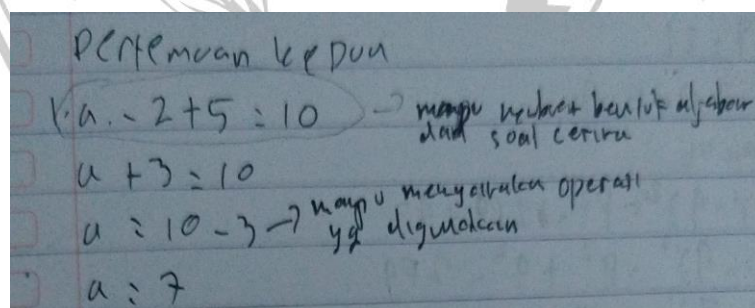 Pertemuan kedua
1. a. - 2 + 5 = 10 → mampu membuat bentuk aljabar dari soal cerita
a + 3 = 10
a = 10 - 3 → mampu menyatakan operasi yg digunakan
a = 7